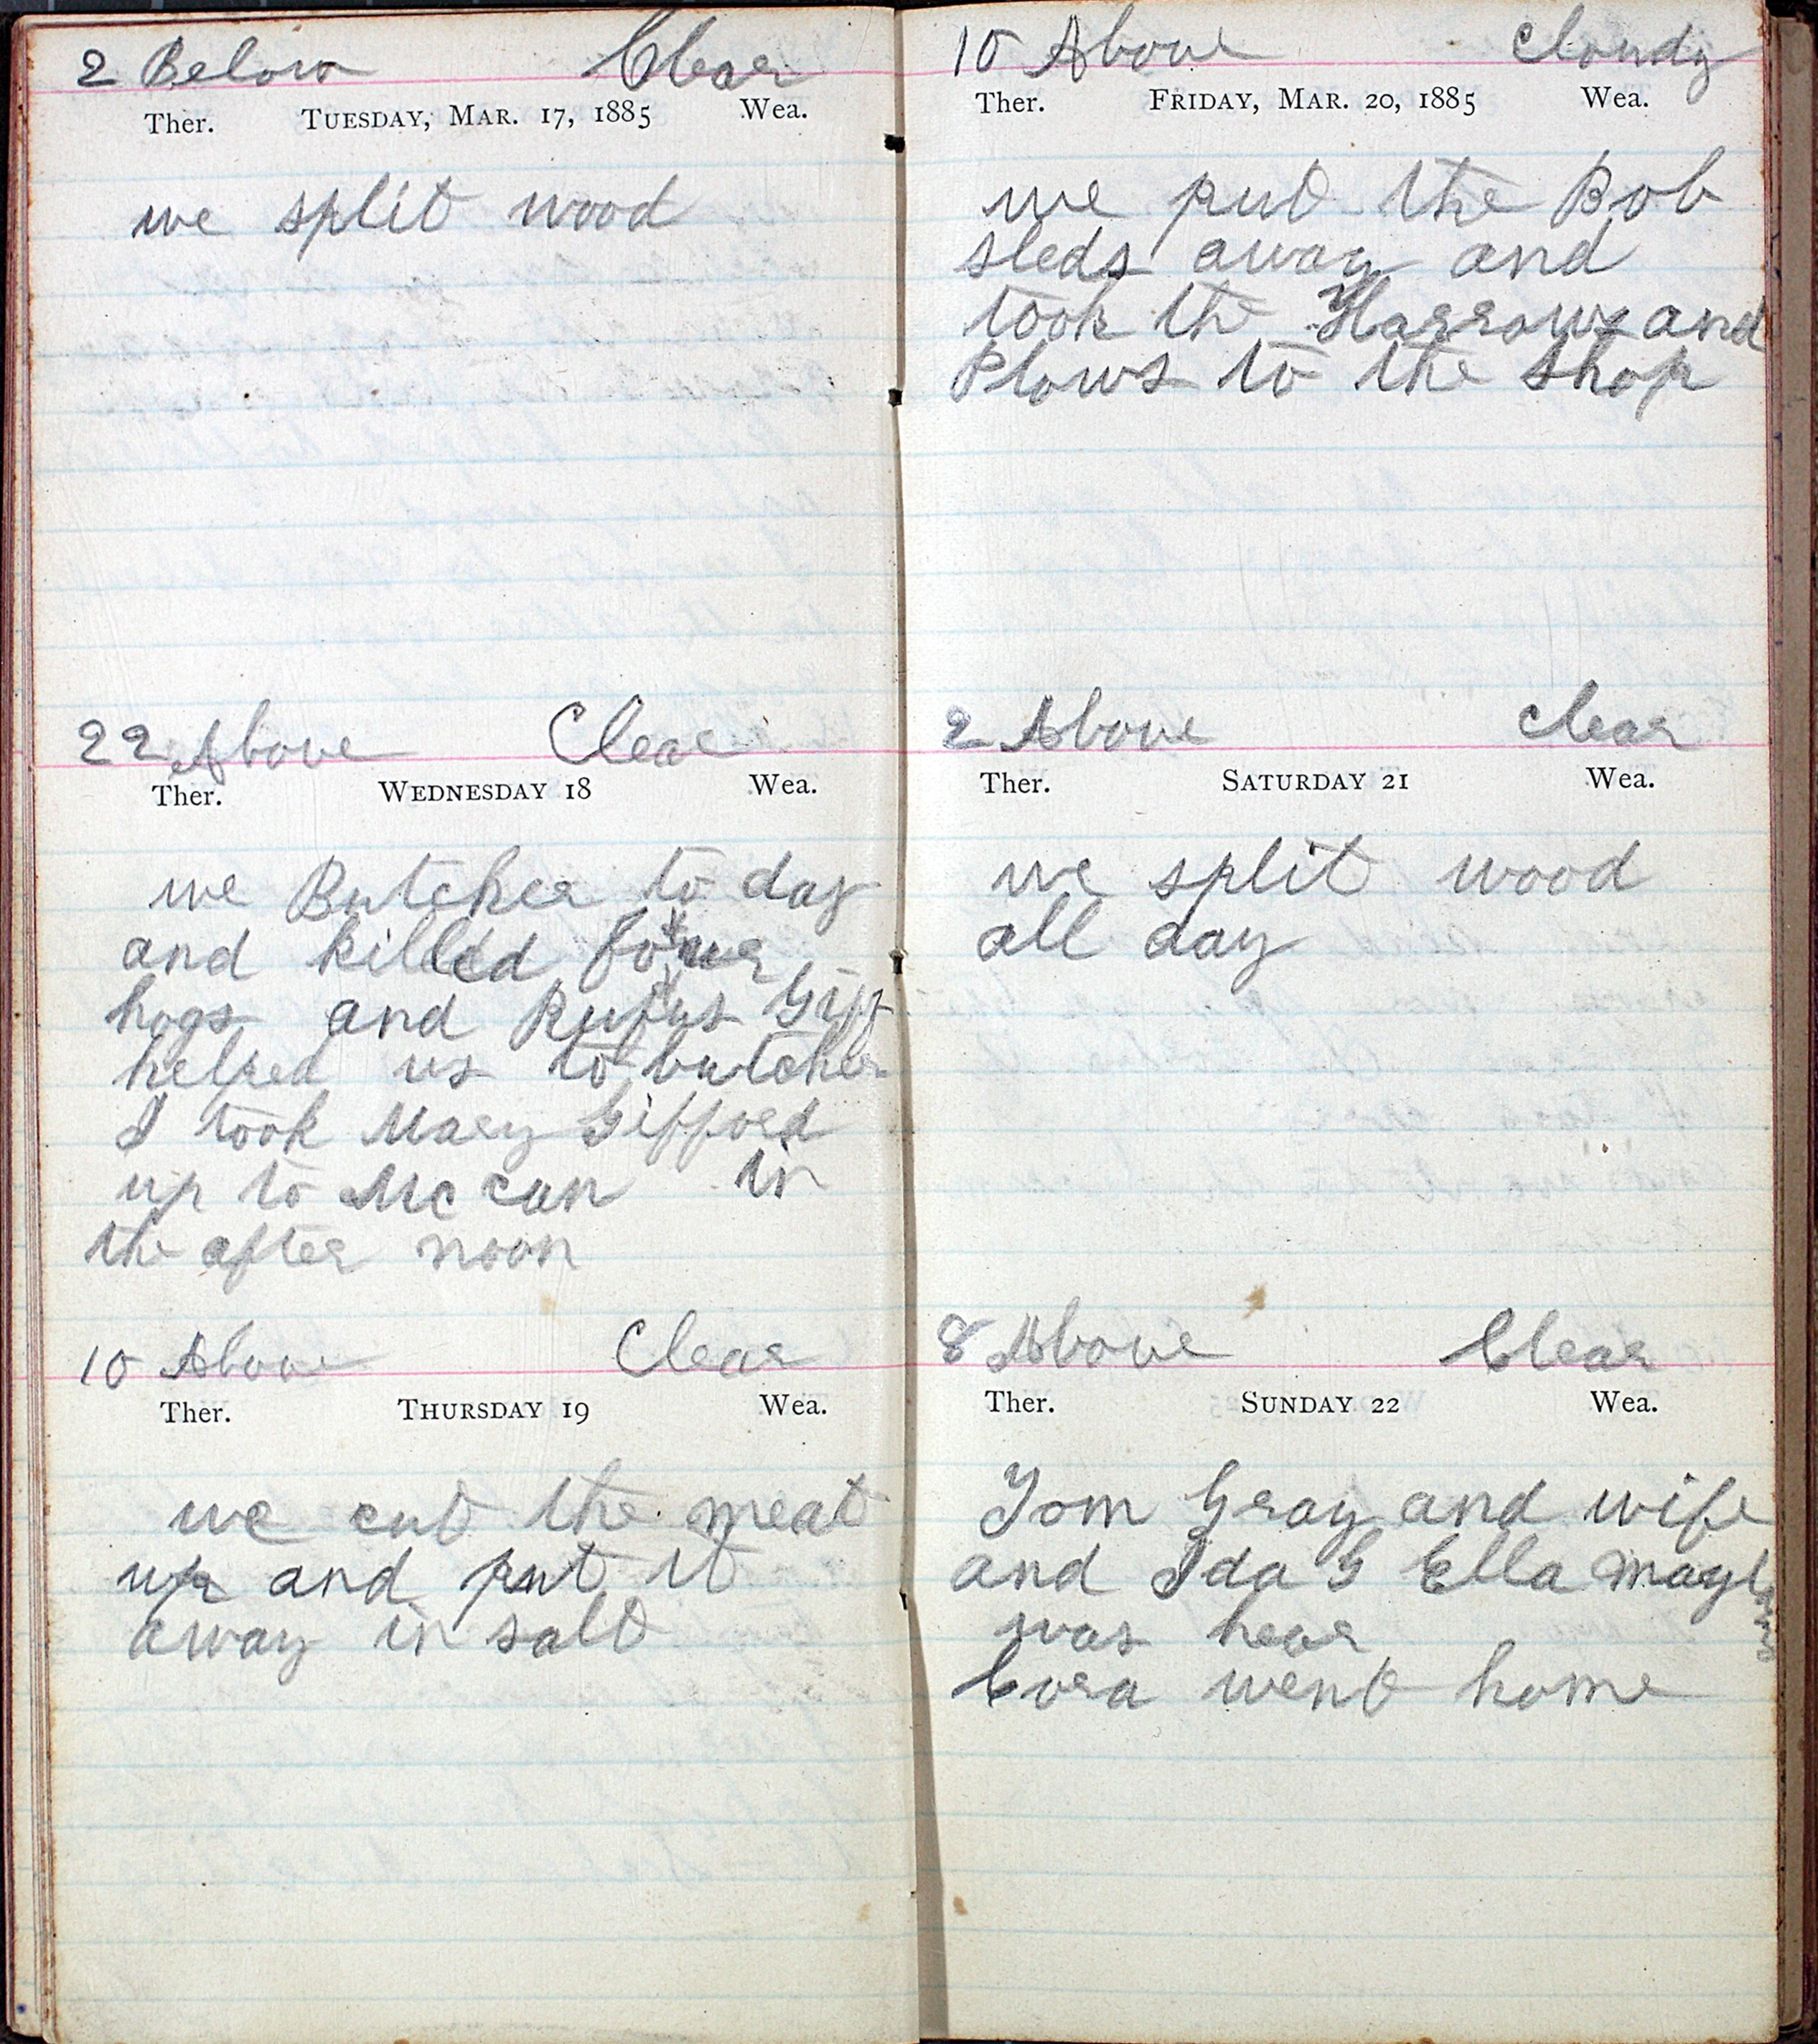 2 Below Clear
Ther. Tuesday, Mar. 17, 1885 Wea.
we split wood
22 Above Clear
Ther. Wednesday 18 Wea.
we Butcher to day
and killed four
hogs and Rufus Giff
helped us to butcher
I took Mary Gifford
up to Mc cun in
the after noon
10 Above Clear
Ther. Thursday 19 Wea.
we cut the meat
up and put it
away in salt
10 Above Cloudy
Ther. Friday, Mar. 20, 1885 Wea.
we put the Bob
sleds away and
took the Harrows and
Plows to the shop
2 Above Clear
Ther. Saturday 21 Wea.
we split wood
all day
8 Above Clear
Ther. Sunday 22 Wea.
Tom Gray and wife
and Ida G Ella
was hear
Cora went home